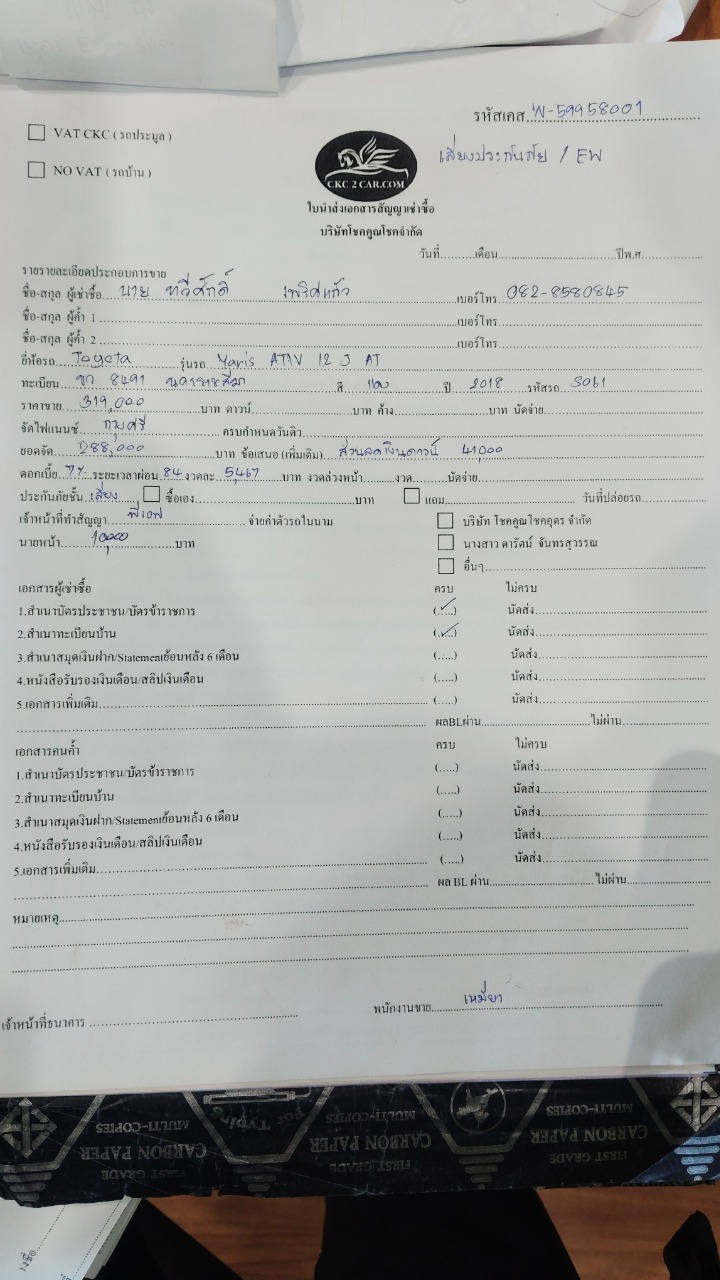 รหัสเคส W-59958001
VAT CKC ( รถประมูล )
เลี่ยงประกันภัย / EW
NO VAT ( รถบ้าน )
CKC 2 CAR.COM
ใบนำส่งเอกสารสัญญาเช่าซื้อ
บริษัทโชคคูณโชคจำกัด
วันที่..........เดือน..........ปีพ.ศ..........
รายรายละเอียดประกอบการขาย
ชื่อ-สกุล ผู้เช่าซื้อ... นาย ทวีศักดิ์ เบอร์โทร 082-8580845
ชื่อ-สกุล ผู้ค้ำ 1 ..........เบอร์โทร..........
ชื่อ-สกุล ผู้ค้ำ 2 ..........เบอร์โทร..........
ยี่ห้อรถ Toyota รุ่นรถ Yaris ATIV 1.2 J AT
ทะเบียน 8491 นครราชสีมา สี แดง ปี 2018 รหัสรถ 3061
ราคาขาย 319,000 บาท ดาวน์..........บาท ค้าง..........บาท นัดจ่าย..........
จัดไฟแนนซ์ กรุงศรี ครบกำหนดวันดิว..........
ยอดจัด 288,000 บาท ข้อเสนอ (เพิ่มเติม) ส่วนลดเงินดาวน์ 41,000
ดอกเบี้ย 7% ระยะเวลาผ่อน 84 งวดละ 5,467 บาท งวดล่วงหน้า..........งวด..........นัดจ่าย..........
ประกันภัยชั้น เลี่ยง ซื้อเอง..........บาท แถม..........วันที่ปล่อยรถ..........
เจ้าหน้าที่ทำสัญญา พี่เอฟ จ่ายค่าตัวรถในนาม บริษัท โชคคูณโชคอุดร จำกัด
นายหน้า 10,000 บาท นางสาว ดารัตน์ จันทรสุวรรณ
อื่นๆ..........
เอกสารผู้เช่าซื้อ ครบ ไม่ครบ
1.สำเนาบัตรประชาชน/บัตรข้าราชการ (..✓..) นัดส่ง..........
2.สำเนาทะเบียนบ้าน (..✓..) นัดส่ง..........
3.สำเนาสมุดเงินฝาก/Statementย้อนหลัง 6 เดือน (.....) นัดส่ง..........
4.หนังสือรับรองเงินเดือน/สลิปเงินเดือน (.....) นัดส่ง..........
5.เอกสารเพิ่มเติม.......... (.....) นัดส่ง..........
ผลBLผ่าน..........ไม่ผ่าน..........
เอกสารคนค้ำ ครบ ไม่ครบ
1.สำเนาบัตรประชาชน/บัตรข้าราชการ (.....) นัดส่ง..........
2.สำเนาทะเบียนบ้าน (.....) นัดส่ง..........
3.สำเนาสมุดเงินฝาก/Statementย้อนหลัง 6 เดือน (.....) นัดส่ง..........
4.หนังสือรับรองเงินเดือน/สลิปเงินเดือน (.....) นัดส่ง..........
5.เอกสารเพิ่มเติม.......... (.....) นัดส่ง..........
ผล BL ผ่าน..........ไม่ผ่าน..........
หมายเหตุ..........
เจ้าหน้าที่ธนาคาร .......... พนักงานขาย เหมียว
MULTI-COPIES
CARBON PAPER
FIRST GRADE
For Typing
MULTI-COPIES
CARBON PAPER
FIRST GRADE
MULTI-COPIES
CARBON PAPER
FIRST GRADE